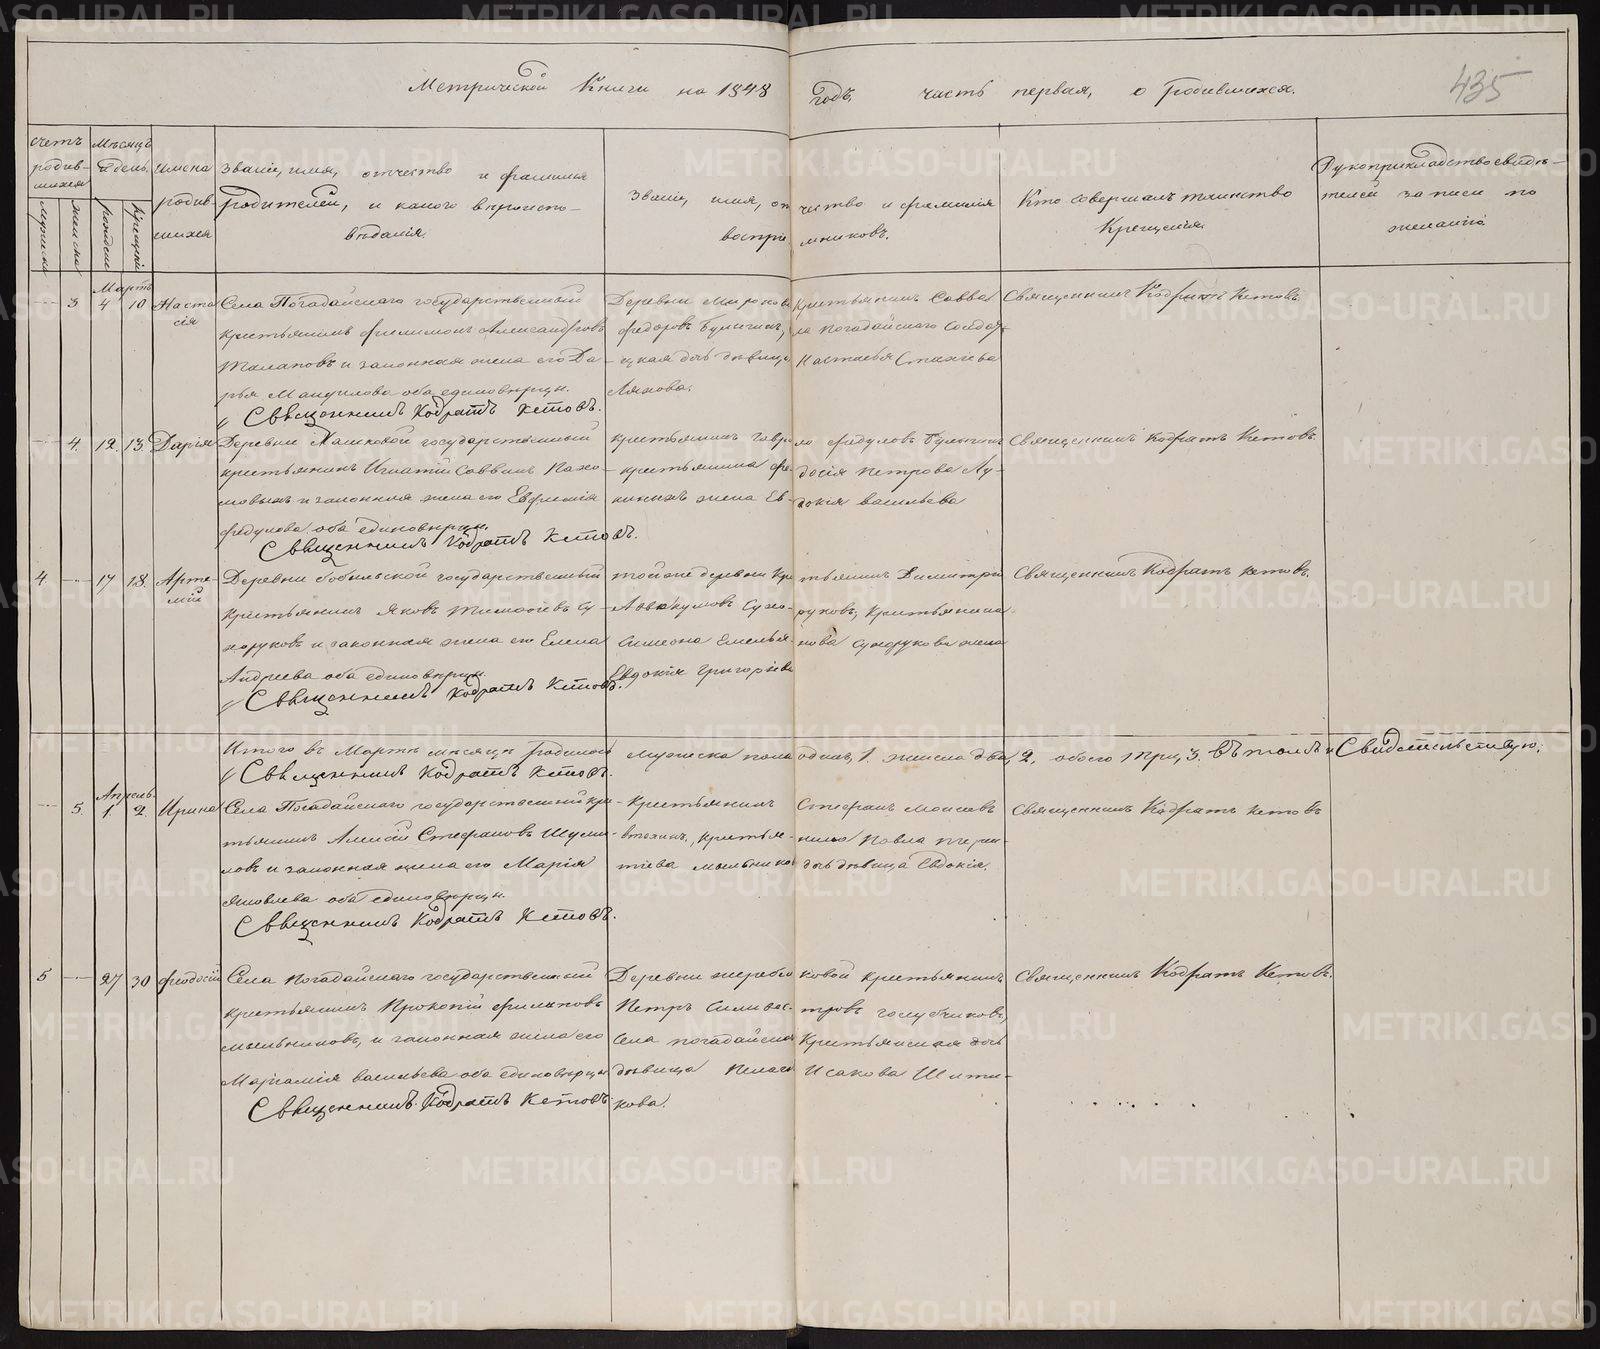 Метрической Книги на 1848 годъ, часть первая, о родившихся.
435
Счетъ родив-шихся
Мѣсяцъ и день
Имена родив-шихся
Званіе, имя, отчество и фамилія
родителей, и какого вѣроиспо-
вѣданія.
Званіе, имя, отчество и фамилія
воспріемниковъ.
Кто совершалъ таинство
Крещенія.
Рукоприкладство свидѣ-
телей записи по
желанію
мужска
женска
рожденія
крещенія
Мартъ
3 4 10 Настасія
Села Погадайскаго государственный
крестьянинъ Филимонъ Александровъ
и законная жена его Да-
рья оба единовѣрцы.
Священникъ Кодратъ Кетовъ.
Деревни крестьянинъ Савва
Федоровъ Булыгинъ, Погадайскаго
дочь дѣвица Настасья
Ляхова.
Священникъ Кодратъ Кетовъ.
4. 12. 13. Дарія
Деревни государственный
крестьянинъ Игнатій Саввинъ Пахо-
мовыхъ и законная жена его Евфимія
Федулова оба единовѣрцы.
Священникъ Кодратъ Кетовъ.
крестьянинъ Гаврило Федуловъ
крестьянина Феодосія Петрова
жена Евдокія Васильева
Священникъ Кодратъ Кетовъ.
4. 17 18. Артемій
Деревни государственный
крестьянинъ Яковъ Тимофеевъ Су-
хоруковъ и законная жена его Елена
Андреева оба единовѣрцы.
Священникъ Кодратъ Кетовъ.
той же деревни Крестьянинъ Димитрій
Аввакумовъ Сухоруковъ, Крестьянина
Симеона Емельянова Сухорукова жена
Евдокія Григорьева
Священникъ Кодратъ Кетовъ.
Итого въ Мартѣ мѣсяцѣ родилось мужеска пола одинъ, 1. женска два, 2. обоего три, 3. въ томъ и Свидѣтельствую.
Священникъ Кодратъ Кетовъ.
Апрѣль
5. 1. 2. Ирина
Села Погадайскаго государственный кре-
стьянинъ Алексій Стефановъ Шуми-
ловъ и законная жена его Марія
Яковлева оба единовѣрцы.
Священникъ Кодратъ Кетовъ.
Крестьянинъ Стефанъ Моисеевъ
Павла
Мыльникова дочь дѣвица Евдокія.
Священникъ Кодратъ Кетовъ
5 27 30 Феодосій
Села Погадайскаго государственный
крестьянинъ Прокопій Филиповъ
Мыльниковъ, и законная жена его
Маріамія Васильева оба единовѣрцы
Священникъ Кодратъ Кетовъ.
Деревни Жеребковой крестьянинъ
Петръ Силивестровъ Голубчиковъ,
Села Погадайскаго Крестьянская дочь
дѣвица Пелагія Исакова Шити-
кова.
Священникъ Кодратъ Кетовъ.
METRIKI.GASO-URAL.RU